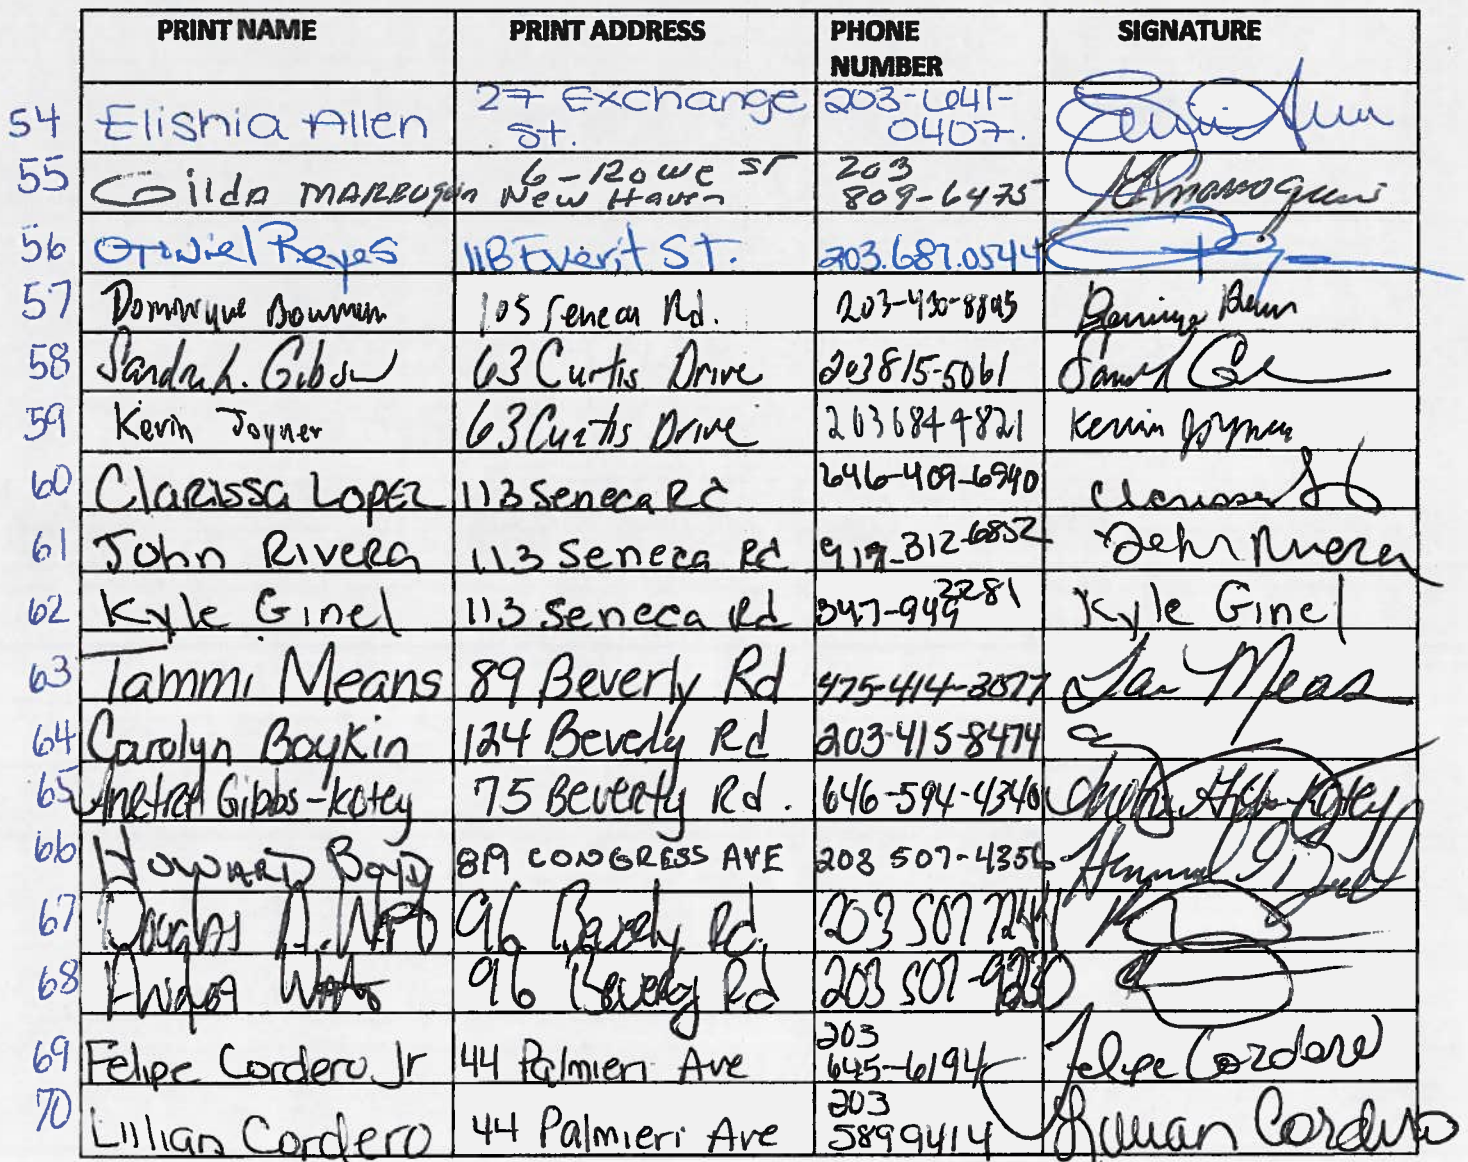 PRINT NAME PRINT ADDRESS PHONE NUMBER SIGNATURE
54 Elishia Allen 27 Exchange St. 203-641-0407.
55 Gilda MARROQUIN 6-Rowe ST New Haven 203 809-6475
56 OTONIEL Reyes 11B Everit ST. 203.687.0544
57 Dominique Bowman 105 Seneca Rd. 203-430-8895
58 Sandra L. Gibson 63 Curtis Drive 203815-5061
59 Kevin Joyner 63 Curtis Drive 2036844821 Kevin Joyner
60 Clarissa Lopez 113 Seneca Rd 646-409-6940 Clarissa
61 John Rivera 113 Seneca Rd 917-312-6852 John Rivera
62 Kyle Ginel 113 Seneca Rd 347-949 2281 Kyle Ginel
63 Tammi Means 89 Beverly Rd 475-414-3077 Means
64 Carolyn Boykin 124 Beverly Rd 203-415-8474
65 Gibbs-Kotey 75 Beverly Rd. 646-594-4340
66 Howard Boyd 819 CONGRESS AVE 203 507-4356
67 Douglas A. 96 Beverly Rd. 203 507
68 96 Beverly Rd 203 507-
69 Felipe Cordero Jr 44 Palmieri Ave 203 645-6194 Felipe Cordero
70 Lillian Cordero 44 Palmieri Ave 203 5899414 Lillian Cordero